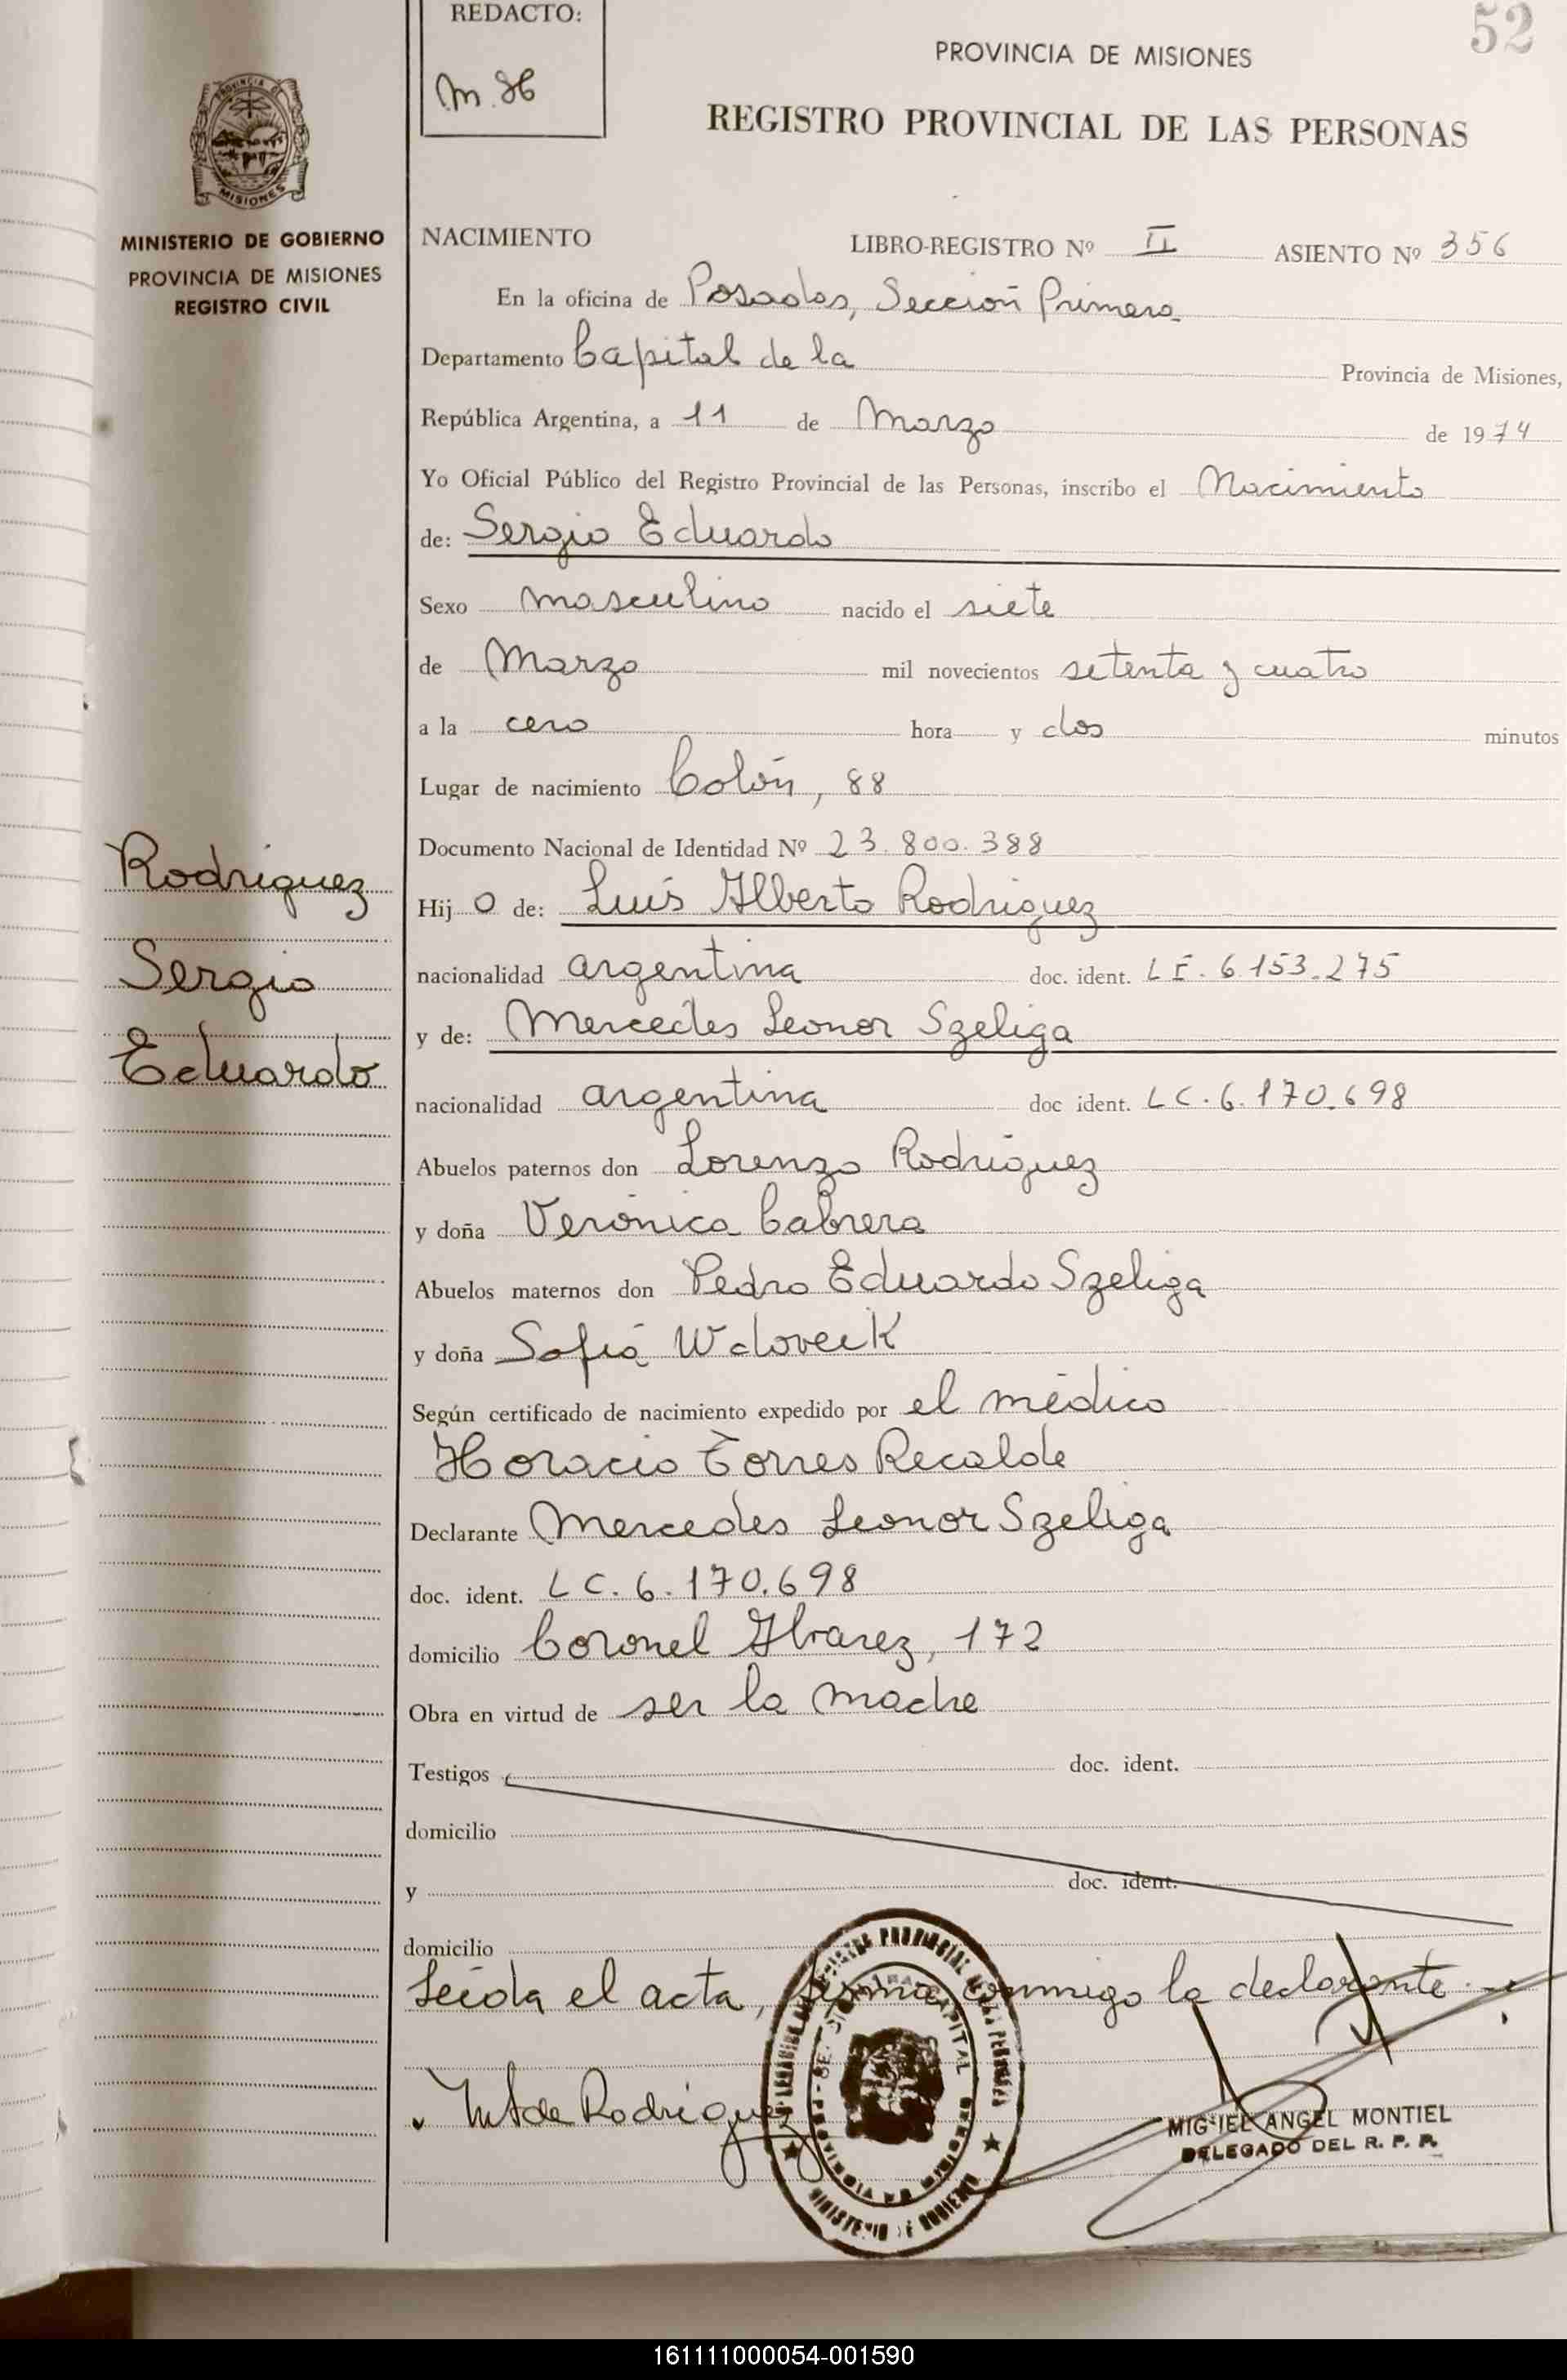 REDACTO:
M.H
52
PROVINCIA DE MISIONES
REGISTRO PROVINCIAL DE LAS PERSONAS
PROVINCIA DE
MISIONES
MINISTERIO DE GOBIERNO
PROVINCIA DE MISIONES
REGISTRO CIVIL
NACIMIENTO LIBRO-REGISTRO Nº II ASIENTO Nº 356
En la oficina de Posadas, Sección Primera
Departamento Capital de la Provincia de Misiones,
República Argentina, a 11 de Marzo de 1974
Yo Oficial Público del Registro Provincial de las Personas, inscribo el Nacimiento
de: Sergio Eduardo
Sexo masculino nacido el siete
de Marzo mil novecientos setenta y cuatro
a la cero hora y dos minutos
Lugar de nacimiento Colón, 88
Documento Nacional de Identidad Nº 23.800.388
Rodriguez
Sergio
Eduardo
Hij o de: Luis Alberto Rodriguez
nacionalidad argentina doc. ident. L E. 6.153.275
y de: Mercedes Leonor Szeliga
nacionalidad argentina doc ident. L C. 6.170.698
Abuelos paternos don Lorenzo Rodriguez
y doña Verónica Cabrera
Abuelos maternos don Pedro Eduardo Szeliga
y doña Sofia
Según certificado de nacimiento expedido por el médico
Horacio Torres Recalde
Declarante Mercedes Leonor Szeliga
doc. ident. L C. 6.170.698
domicilio Coronel Alvarez, 172
Obra en virtud de ser la madre
Testigos doc. ident.
domicilio
y doc. ident.
domicilio
Leida el acta, firma conmigo la declarante.
de Rodriguez
MIGUEL ANGEL MONTIEL
DELEGADO DEL R. P. P.
MINISTERIO DE GOBIERNO
161111000054-001590